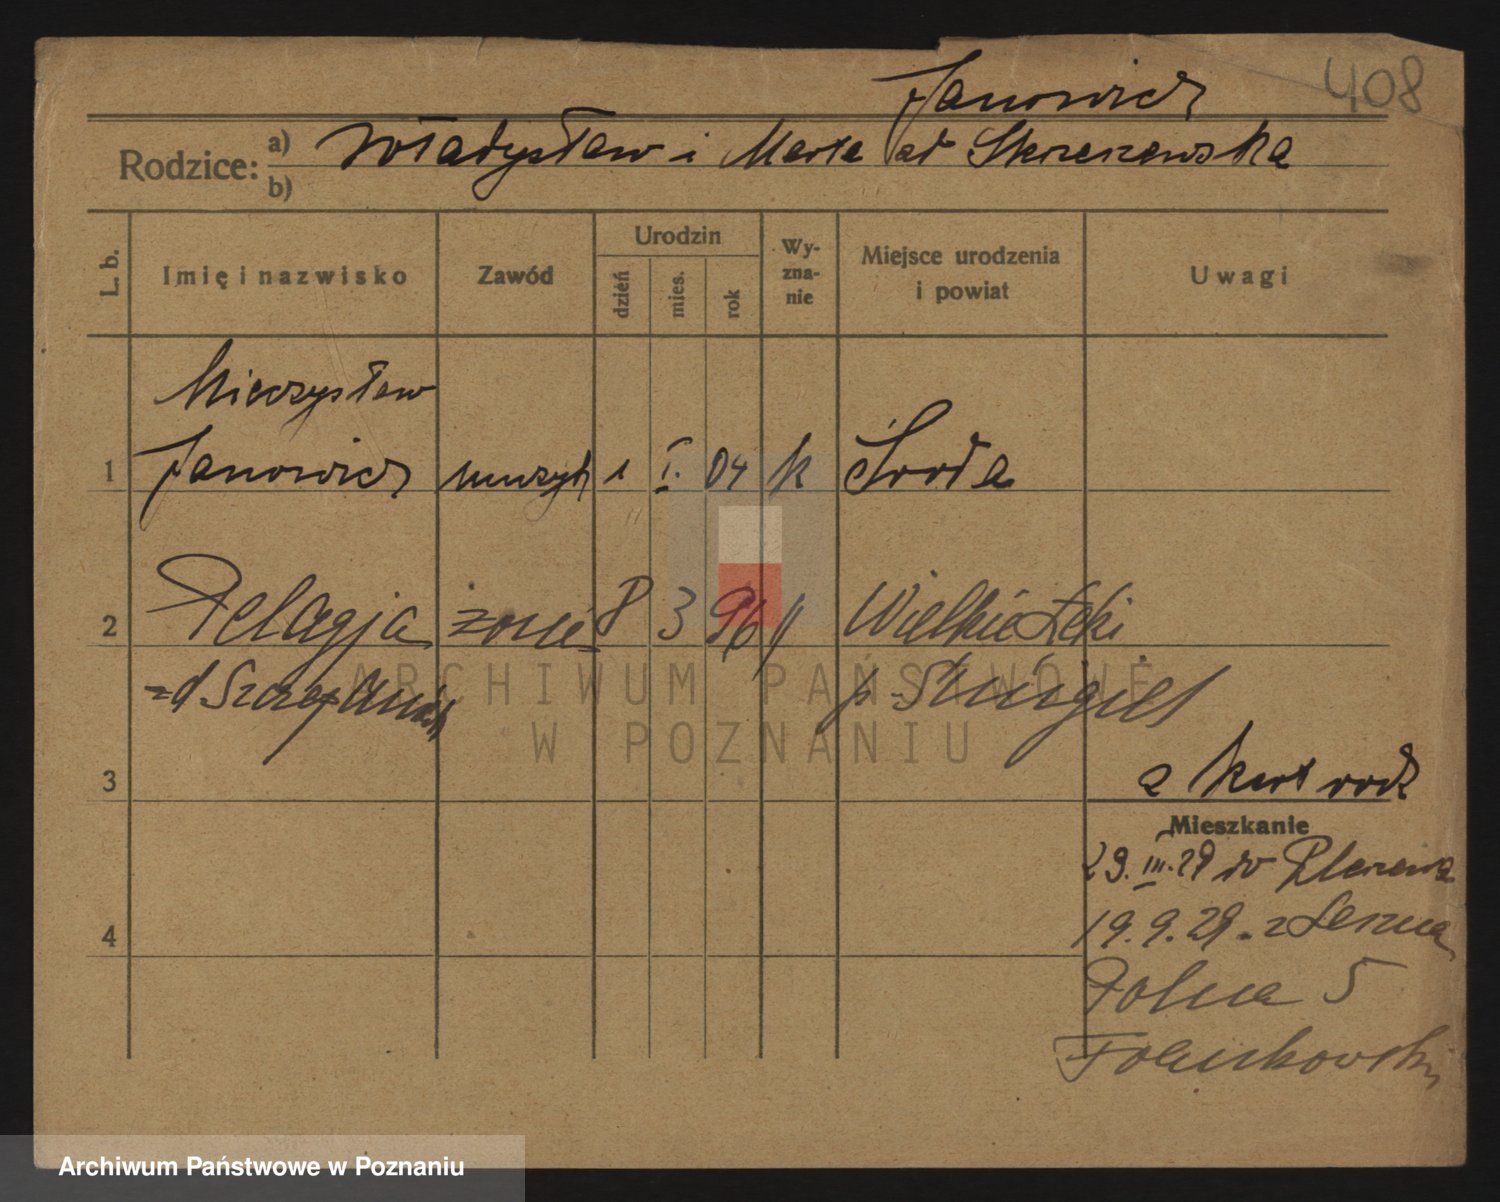 408
Janowicz
Rodzice: a) Władysław i Marta zd Skrzeszewska
b)
L. b.
Imię i nazwisko
Zawód
Urodzin
dzień
mies.
rok
Wy-
zna-
nie
Miejsce urodzenia
i powiat
Uwagi
Mieczysław
1 Janowicz muzyk 1 I. 04 k Środa
2 Pelagja żona 8 3 96 " Wielkie Łęki
zd p. Śmigiel
3
z kart rodz
Mieszkanie
29. III. 29 do Pleszewa
19. 9. 29. z Leszna
4
Polna 5
ARCHIWUM PAŃSTWOWE
W POZNANIU
Archiwum Państwowe w Poznaniu